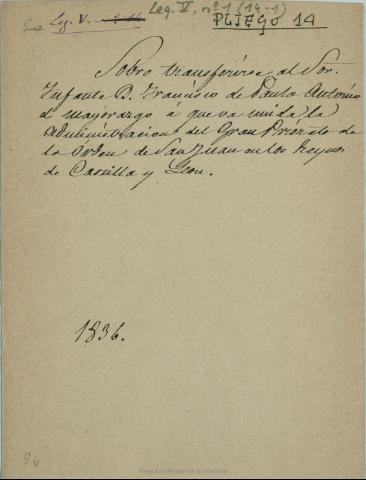 Leg. V, nº 1 (14-1)
Leg. V.
PLIEGO 14
Sobre transferirse al Sōr.
Infante D. Francisco de Paula Antonio
el mayorazgo á que va unida la
Administracion del Gran Priorato de
la Orden de San Juan en los Reynos
de Castilla y Leon.
1836.
Real Academia de la Historia